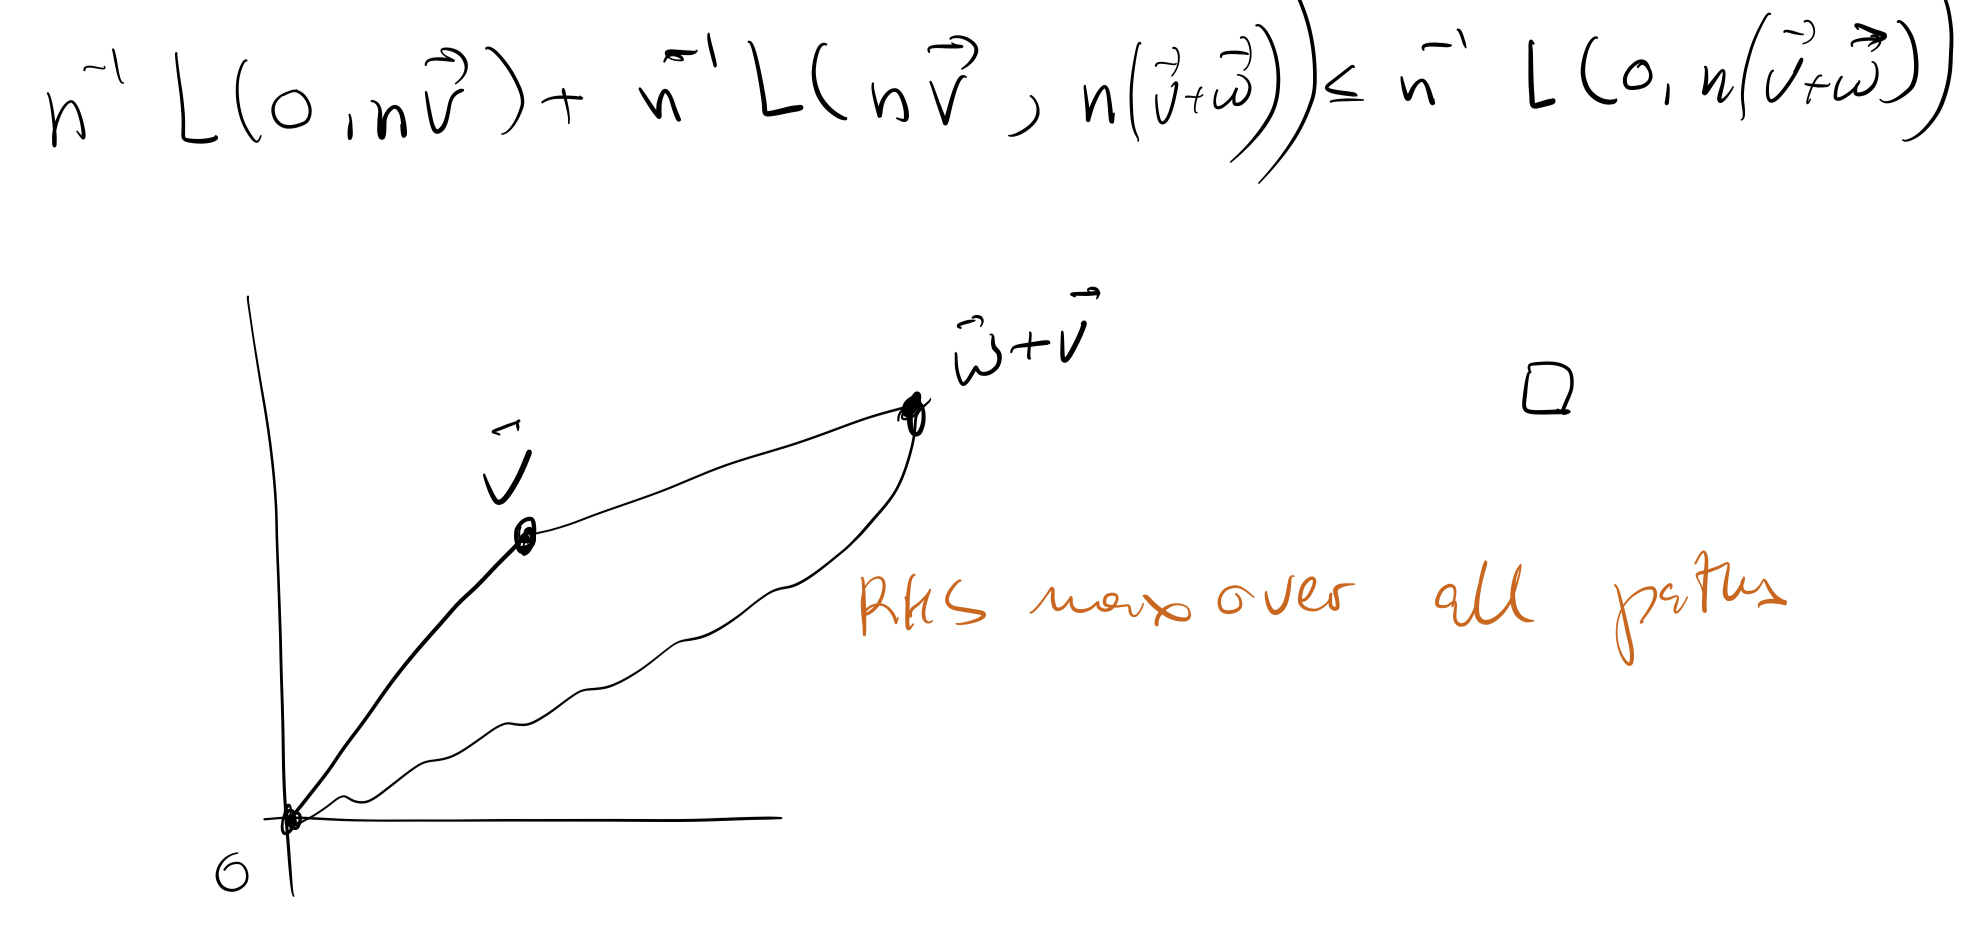 n⁻¹ L(0, n\vec{v}) + n⁻¹ L(n\vec{v}, n(\vec{v}+\vec{w})) ≤ n⁻¹ L(0, n(\vec{v}+\vec{w}))
\vec{w}+\vec{v}
□
\vec{v}
RHS max over all paths
0